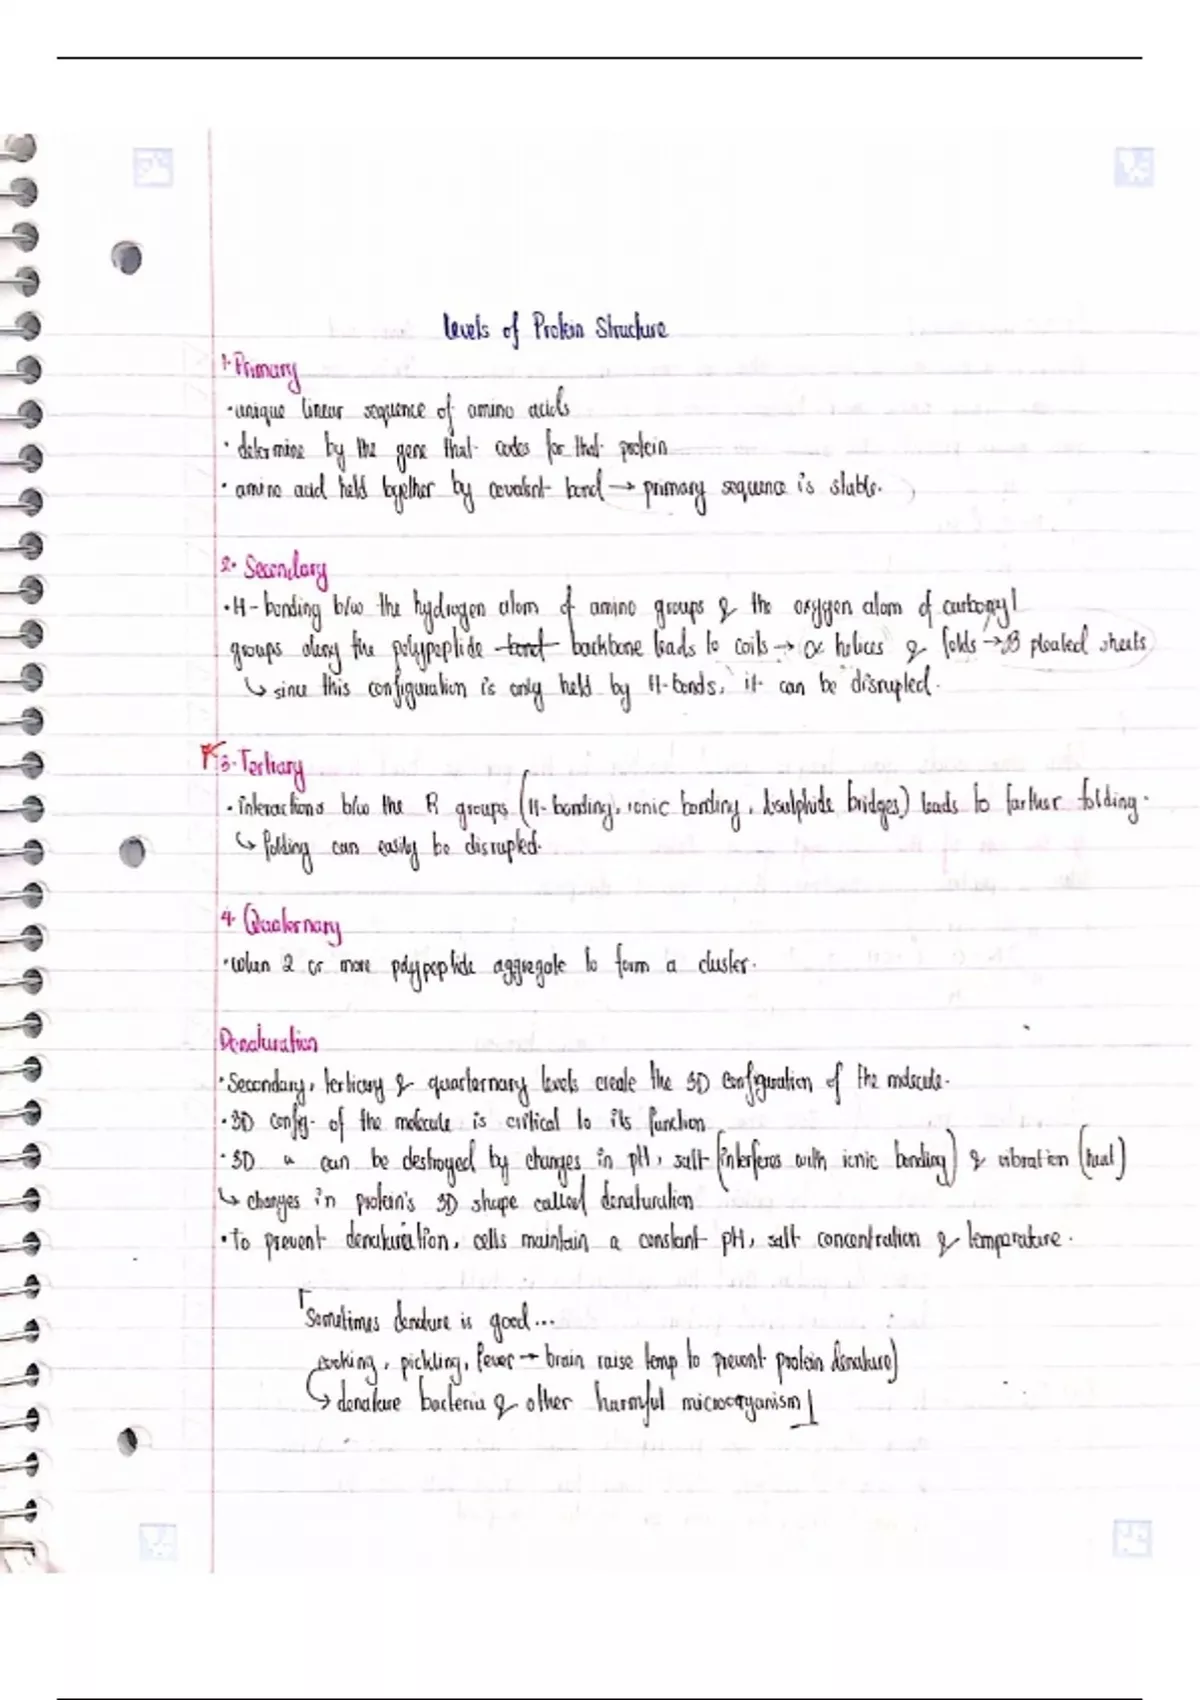 Levels of Protein Structure
1. Primary
• unique linear sequence of amino acids
• determine by the gene that codes for that protein
• amino acid held together by covalent bond → primary sequence is stable.
2. Secondary
• H-bonding b/w the hydrogen atom of amino groups & the oxygen atom of carbonyl
groups along the polypeptide backbone leads to coils → α helices & folds → B pleated sheets
↳ since this configuration is only held by H-bonds, it can be disrupted.
3. Tertiary
• interactions b/w the R groups (H-bonding, ionic bonding, disulphide bridges) leads to further folding.
↳ folding can easily be disrupted.
4. Quaternary
• When 2 or more polypeptide aggregate to form a cluster.
Denaturation
• Secondary, tertiary & quarternary levels create the 3D configuration of the molecule.
• 3D config. of the molecule is critical to its function
• 3D " can be destroyed by changes in pH, salt (interferes with ionic bonding) & vibration (heat)
↳ changes in protein's 3D shape called denaturation
• to prevent denaturation, cells maintain a constant pH, salt concentration & temperature.
Sometimes denature is good...
cooking, pickling, fever → brain raise temp to prevent protein denature)
↳ denature bacteria & other harmful microorganism